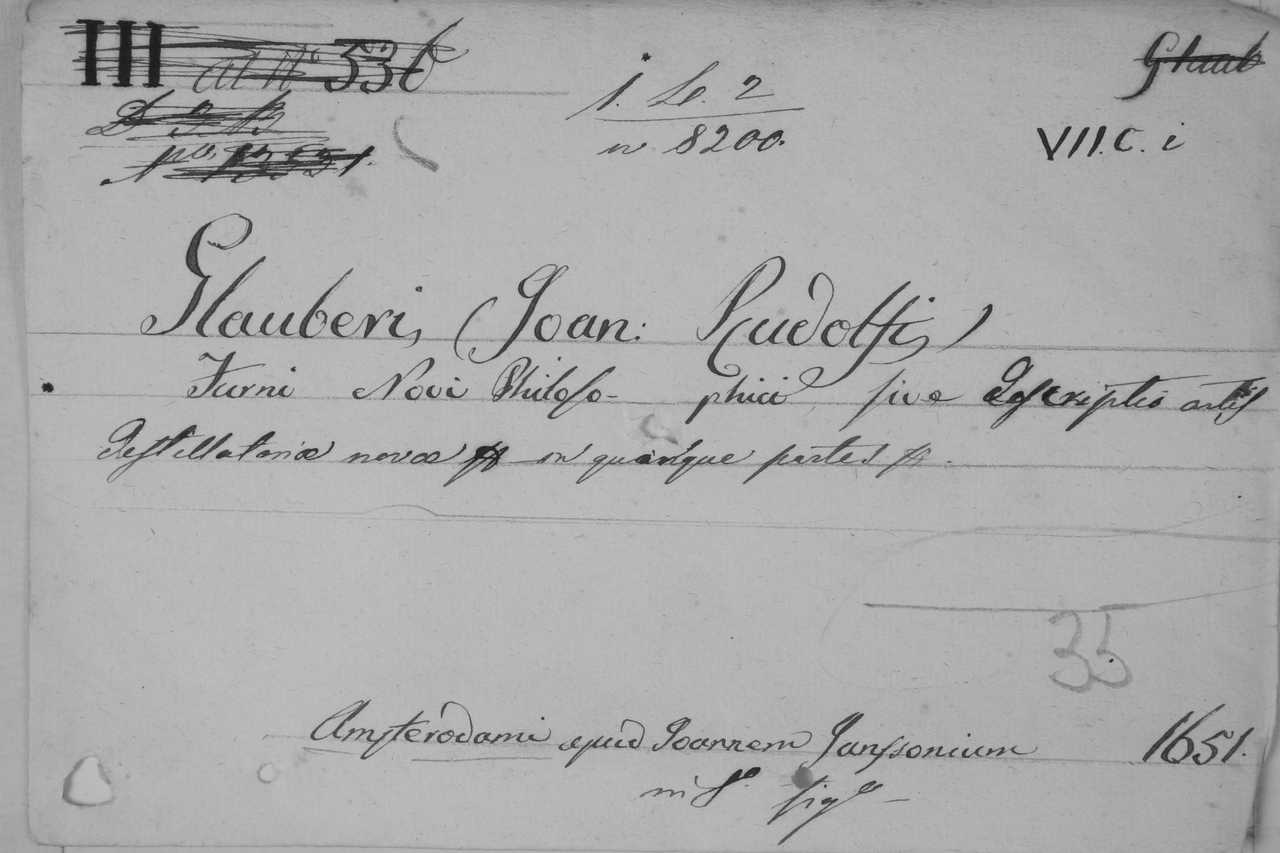 III ad Nº 536
Glaub
1. Le. 2
D 3 B
n 8200.
VII. C. i
Glauberi, (Joan: Rudolfi,)
Furni Novi Philoso- phici, sive Descriptio artis
Destillatoriæ novæ in quinque partes
35
Amsterodami apud Joannem Janssonium 1651.
in 8º. fig